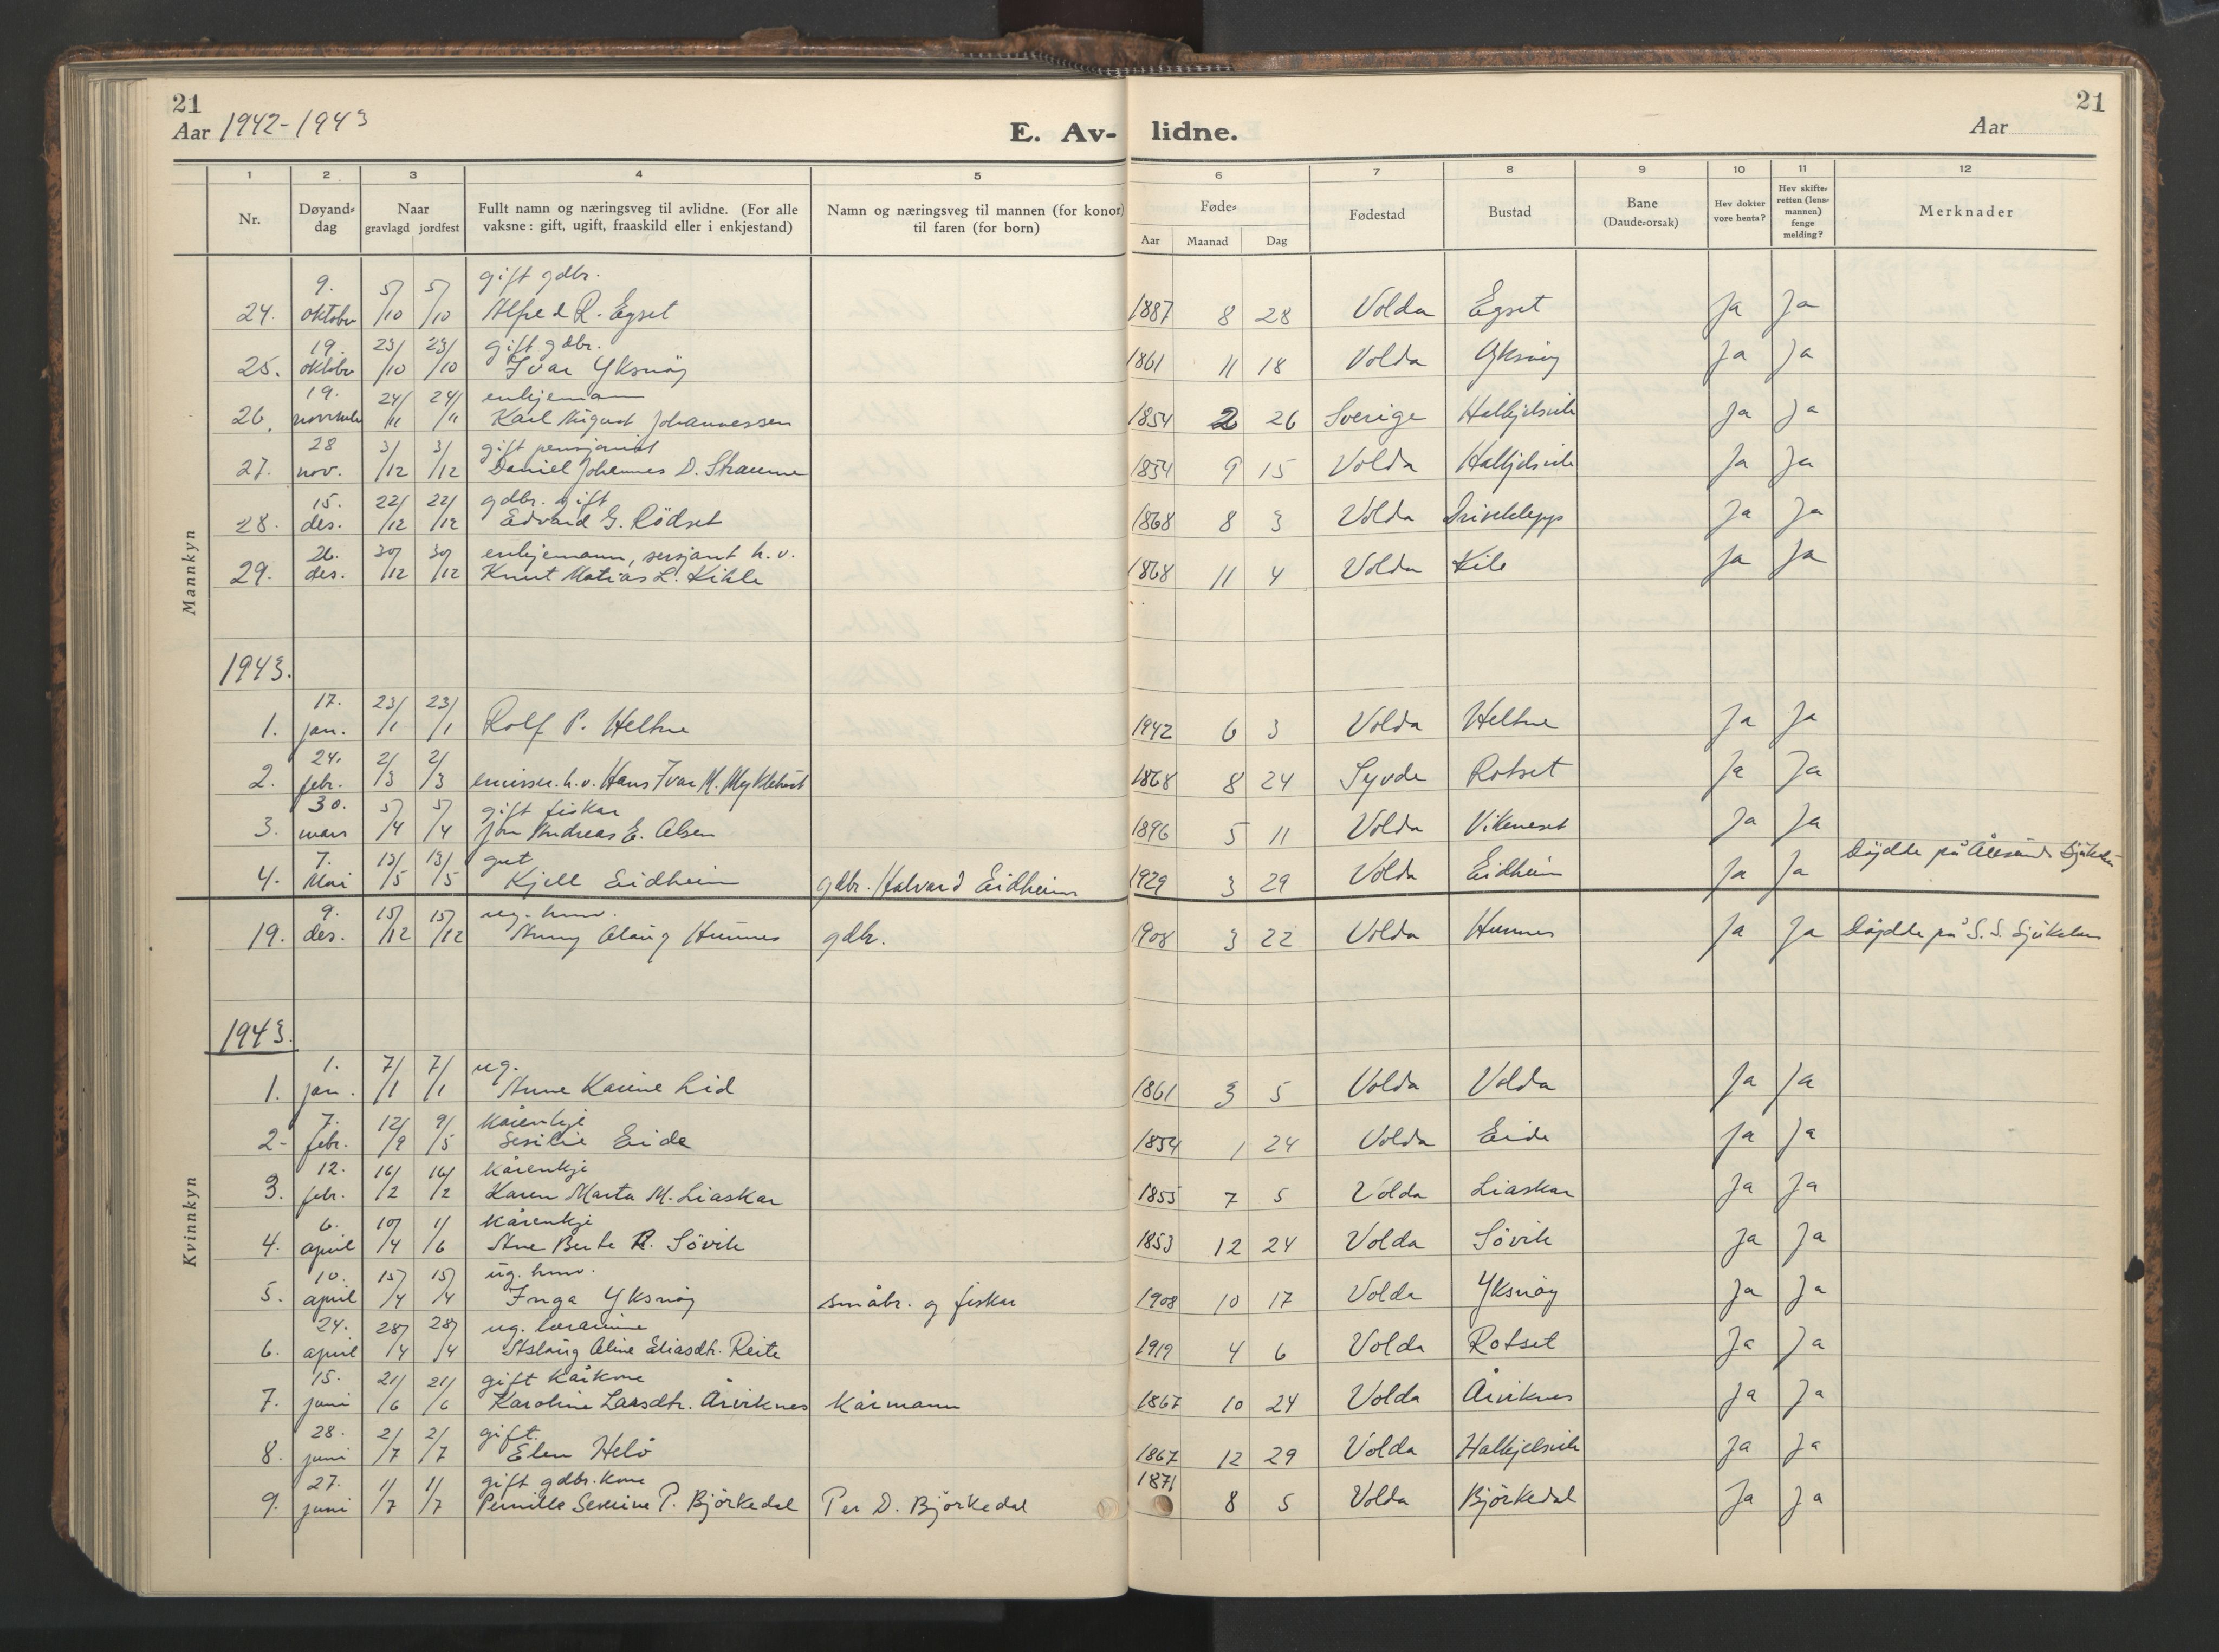 21
Aar 1942-1943
E. Av-
lidne.
Aar
21
1 2 3 4 5 6 7 8 9 10 11 12
Nr.
Døyand-dag
Naar
gravlagd jordfest
Fullt namn og næringsveg til avlidne. (For alle
vaksne: gift, ugift, fraaskild eller i enkjestand)
Namn og næringsveg til mannen (for konor)
til faren (for born)
Føde-
Aar Maanad Dag
Fødestad
Bustad
Bane
(Daude-orsak)
Hev dokter
vore henta?
Hev skifte-
retten (lens-
mannen)
fenge
melding?
Merknader
Mannkyn
9. 5/ 5/ gift gdbr.
24. oktober /10 /10 Alfred R. Egset 1887 8 28 Volda Egset Ja Ja
19. 23/ 23/ gift gdbr.
25. oktober /10 /10 Ivar Yksnøy 1861 11 18 Volda Yksnøy Ja Ja
19. 24/ 24/ enkjemann
26. november /11 /11 Karl August Johannessen 1854 2 26 Sverige Halkjelsvik Ja Ja
28 3/ 3/ gift pensjonist
27. nov. /12 /12 Daniel Johannes D. Straume 1854 9 15 Volda Halkjelsvik Ja Ja
15. 22/ 22/ gdbr. gift
28. des. /12 /12 Edvard G. Rödset 1868 8 3 Volda Driveklepp Ja Ja
26. 30/ 30/ enkjemann, sersjant h. v.
29. des. /12 /12 Knut Matias L. Kihle 1868 11 4 Volda Kile Ja Ja
1943.
17. 23/ 23/
1. jan. /1 /1 Rolf P. Heltne 1942 6 3 Volda Heltne Ja Ja
24. 2/ 2/
2. febr. /3 /3 emisser. h. v. Hans Ivar M. Myklebust 1868 8 24 Syvde Rotset Ja Ja
30. 5/ 5/ gift fiskar
3. mars /4 /4 Jon Andreas E. Alsen 1896 5 11 Volda Vikeneset Ja Ja
7. 13/ 13/ gut
4. Mai /5 /5 Kjell Eidheim gdbr. Halvard Eidheim 1929 3 29 Volda Eidheim Ja Ja Döydde på Ålesund Sjukehus
Kvinnkyn
9. 15/ 15/ ug. husv.
19. des. /12 /12 Anny Olaug Hunnes gdbr. 1908 3 22 Volda Hunnes Ja Ja Döydde på S. S. Sjukehus
1943.
1. 7/ 7/ ug.
1. jan. /1 /1 Anne Karine Lid 1861 3 5 Volda Volda Ja Ja
7. 12/ 9/ Kårenkje
2- febr. /9 /5 Sesilie Eide 1854 1 24 Volda Eide Ja Ja
12. 16/ 16/ Kårenkje
3. febr. /2 /2 Karen Marta M. Liaskar 1855 7 5 Volda Liaskar Ja Ja
6. 10/ 1/ Kårenkje
4. april /4 /6 Ane Berte R. Sövik 1853 12 24 Volda Sövik Ja Ja
10. 15/ 15/ ug. husv.
5. april /4 /4 Inga Yksnøy småbr. og fiskar 1908 10 17 Volda Yksnøy Ja Ja
24. 28/ 28/ ug. lærarinne
6. april /4 /4 Aslaug Aline Eliasdtr. Reite 1919 4 6 Volda Rotset Ja Ja
15. 21/ 21/ gift Kårkone
7. juni /6 /6 Karoline Larsdtr. Årviknes Kårmann 1867 10 24 Volda Årviknes Ja Ja
28. 2/ 2/ gift.
8. juni /7 /7 Elen Helö 1867 12 29 Volda Halkjelsvik Ja Ja
27. 1/ 1/ gift gdbr. kone
9. juni /7 /7 Pernille Severine P. Björkedal Per D. Björkedal 1871 8 5 Volda Björkedal Ja Ja